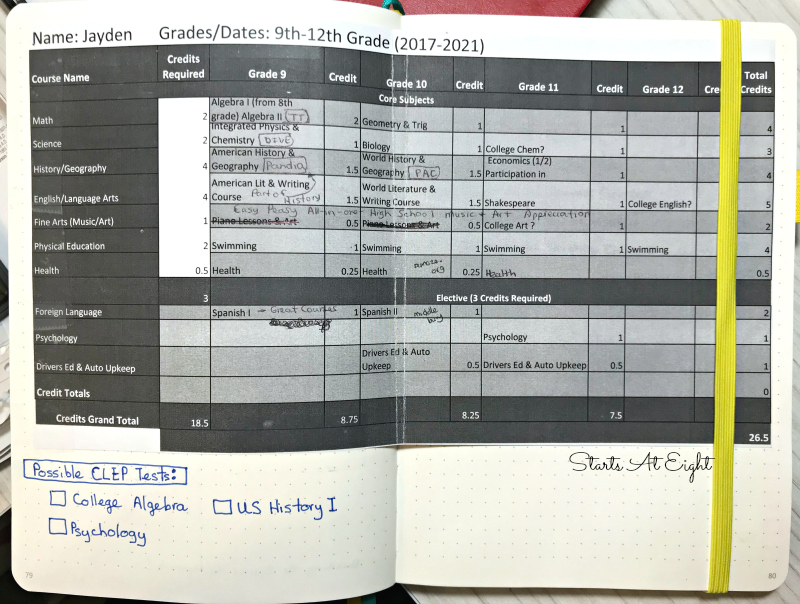 Name: Jayden Grades/Dates: 9th-12th Grade (2017-2021)
Course Name Credits Required Grade 9 Credit Grade 10 Credit Grade 11 Credit Grade 12 Cre Total Credits
Core Subjects
Math 2 Algebra I (from 8th grade) Algebra II (TT) 2 Geometry & Trig 1 1 4
Science 2 Integrated Physics & Chemistry (DIVE) 1 Biology 1 College Chem? 1 3
History/Geography 4 American History & Geography (Pandia) 1.5 World History & Geography (PAC) 1.5 Economics (1/2) Participation in 1 4
English/Language Arts 4 American Lit & Writing Course Part of History 1.5 World Literature & Writing Course 1.5 Shakespeare 1 College English? 5
Easy Peasy All-in-one High School music + Art Appreciation
Fine Arts (Music/Art) 1 Piano Lessons & Art 0.5 Piano Lessons & Art 0.5 College Art ? 1 2
Physical Education 2 Swimming 1 Swimming 1 Swimming 1 Swimming 4
Health 0.5 Health 0.25 Health 0.25 Health 0.5
3 Elective (3 Credits Required)
Foreign Language Spanish I - Great Courses 1 Spanish II 1 2
Psychology Psychology 1 1
Drivers Ed & Auto Upkeep Drivers Ed & Auto Upkeep 0.5 Drivers Ed & Auto Upkeep 0.5 1
Credit Totals 0
Credits Grand Total 18.5 8.75 8.25 7.5
26.5
Possible CLEP Tests:
College Algebra US History I
Psychology
Starts At Eight
79 80